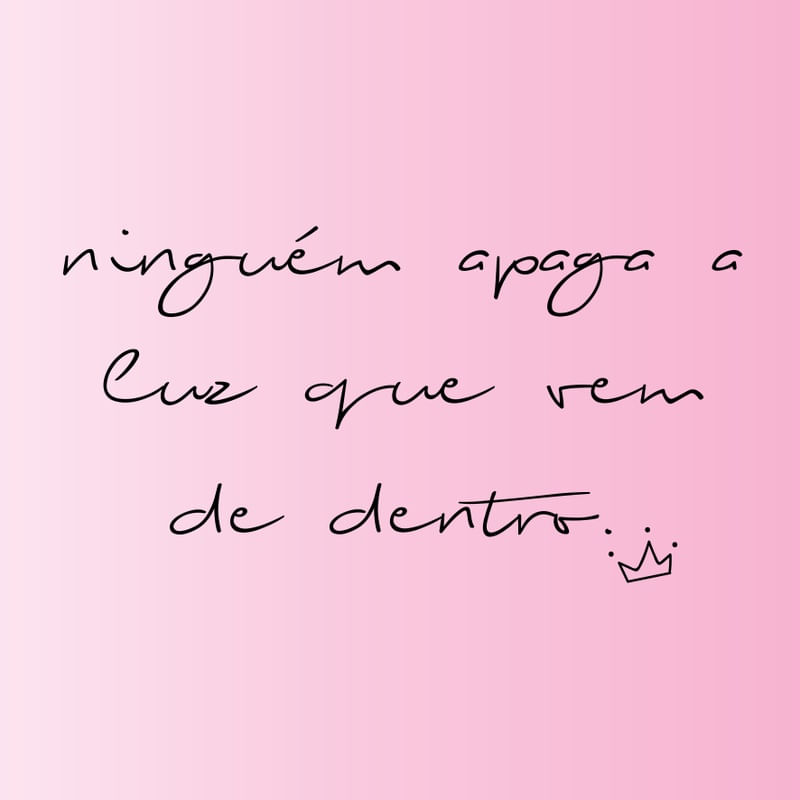 ninguém apaga a
luz que vem
de dentro.